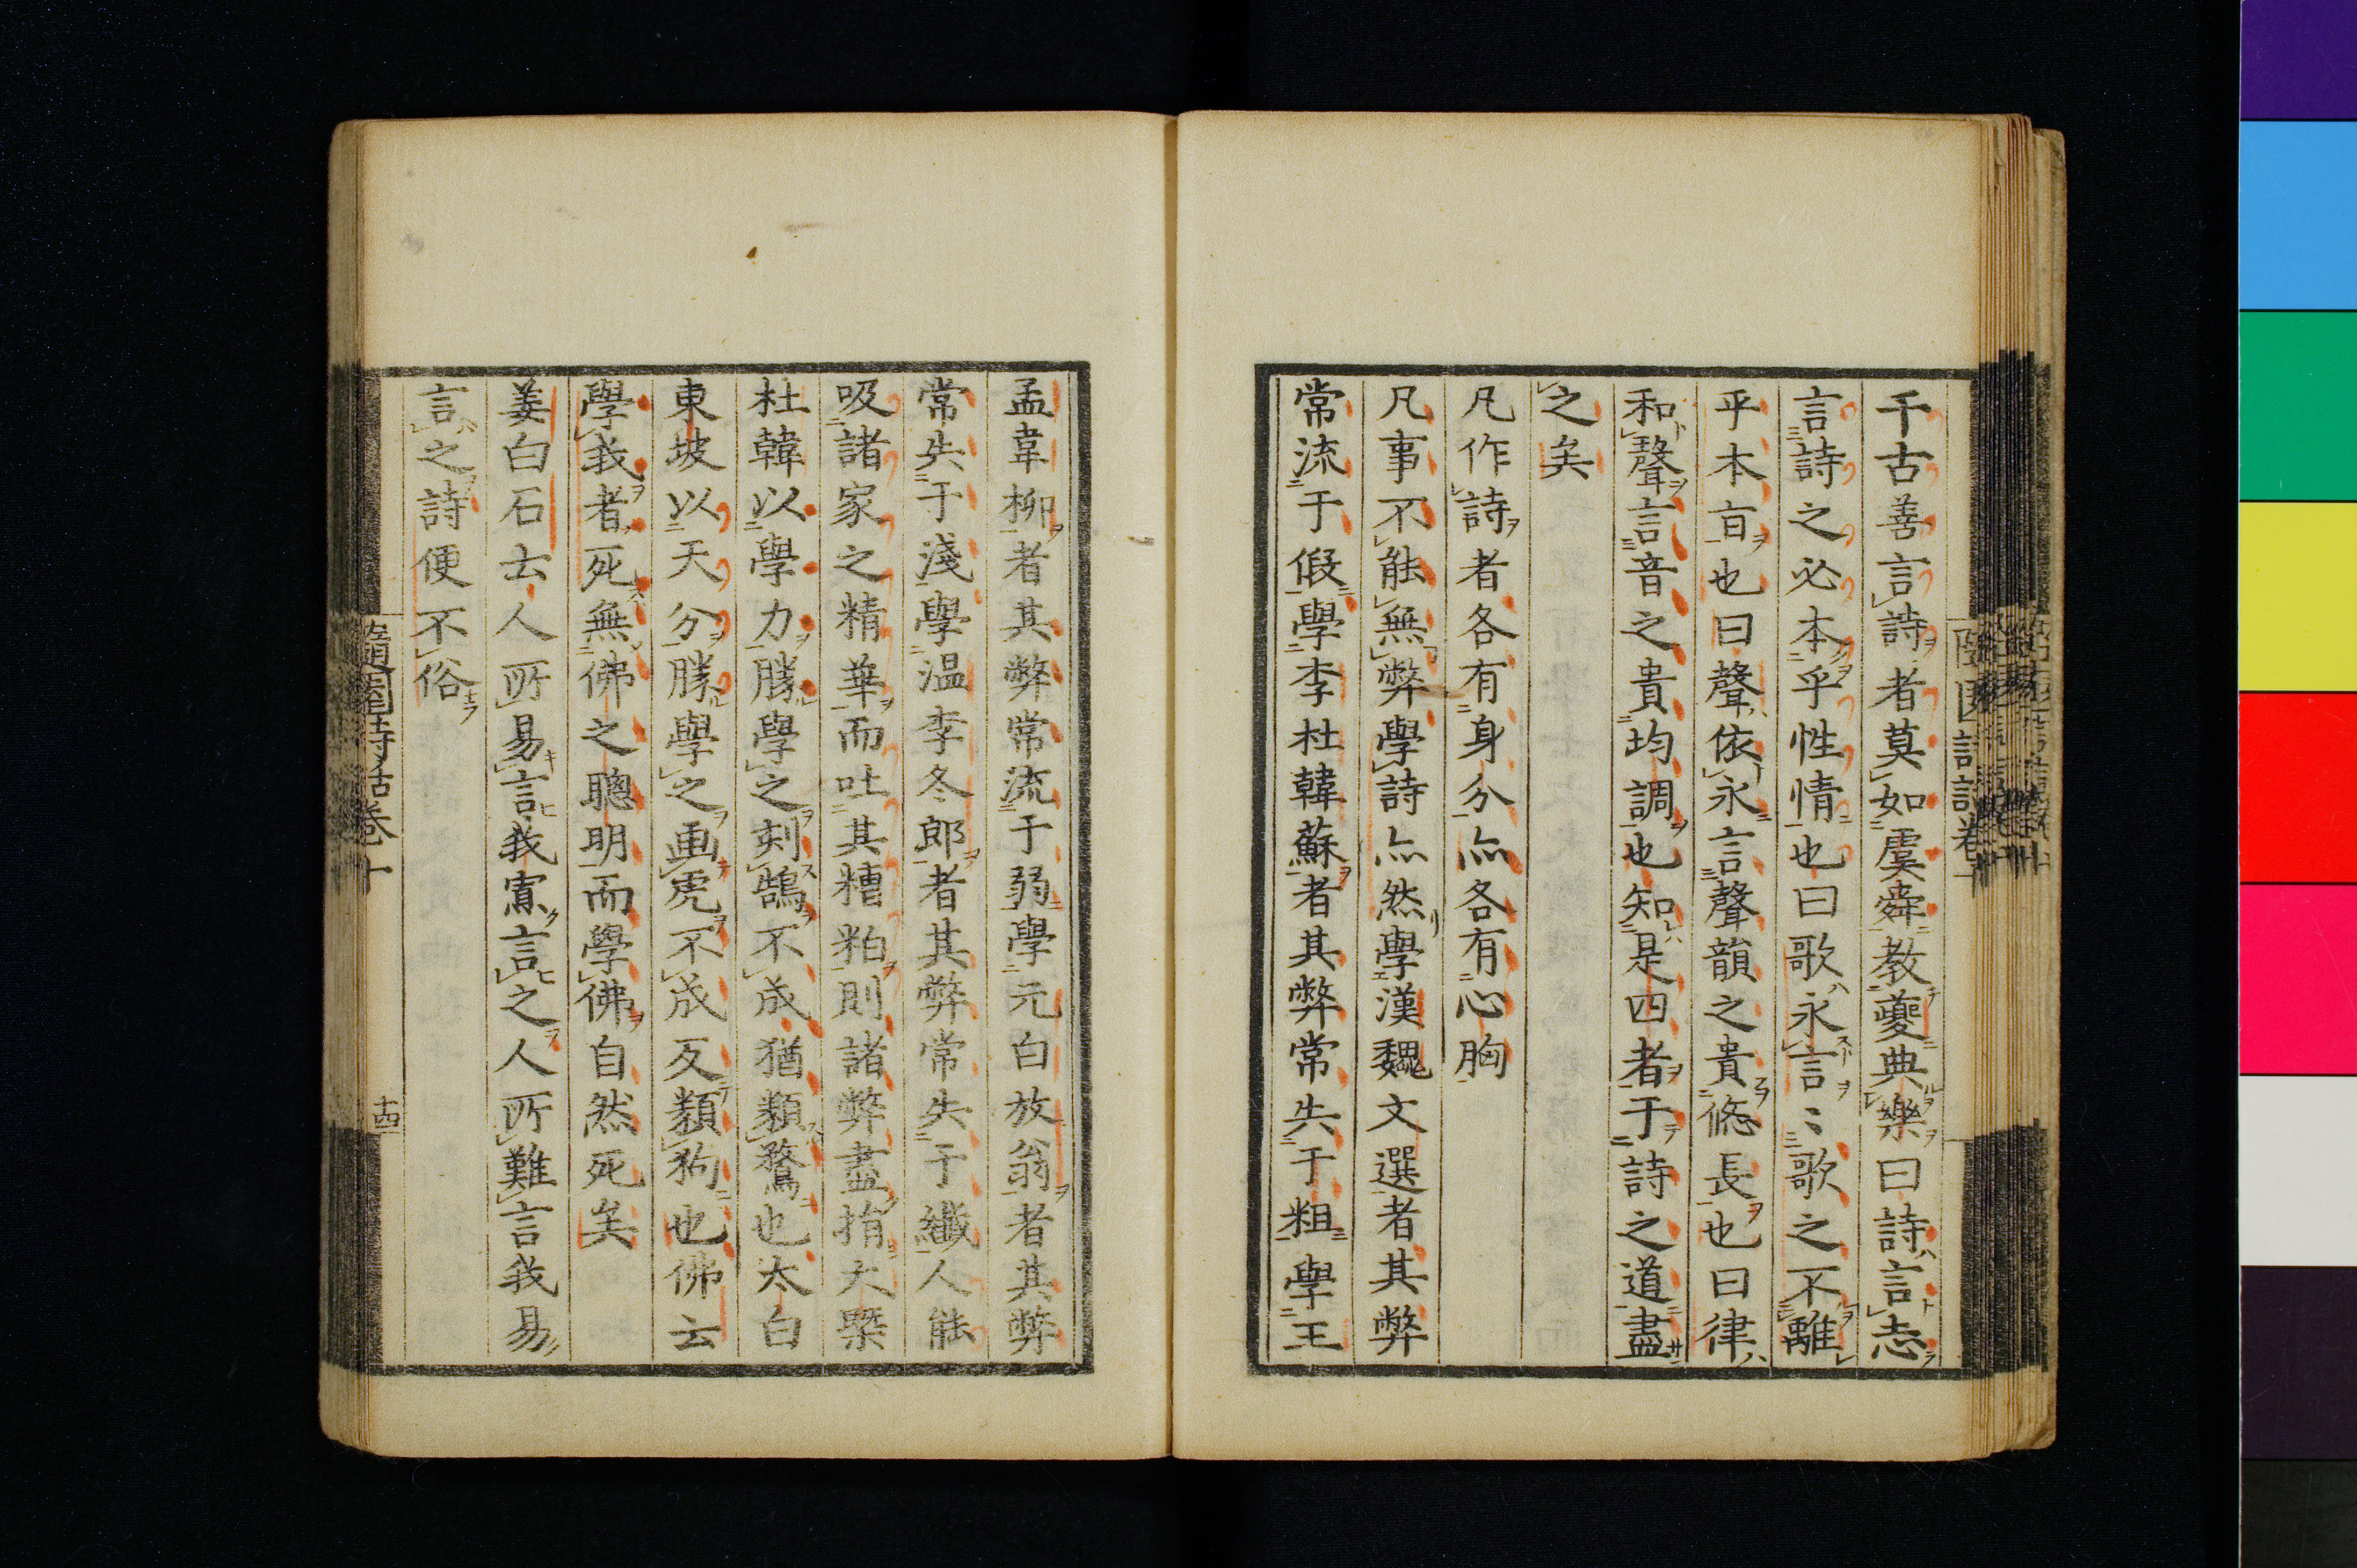 千古善言詩者莫如虞舜教夔典樂曰詩言志
言詩之必本乎性情也曰歌永言〻歌之不離
乎本旨也曰聲依永言聲韻之貴悠長也曰律
和聲言音之貴均調也知是四者于詩之道盡
之矣
凡作詩者各有身分亦各有心胸
凡事不能無弊學詩亦然學漢魏文選者其弊
常流于假學李杜韓蘇者其弊常失于粗學王
孟韋柳者其弊常流于弱學元白放翁者其弊
常失于淺學温李冬郎者其弊常失于纖人能
吸諸家之精華而吐其糟粕則諸弊盡捐大槩
杜韓以學力勝學之刻鵠不成猶類鶩也太白
東坡以天分勝學之画虎不成反類狗也佛云
學我者死無佛之聰明而學佛自然死矣
姜白石云人所易言我寡言之人所難言我易
言之詩便不俗
隨園詩話卷十
十四